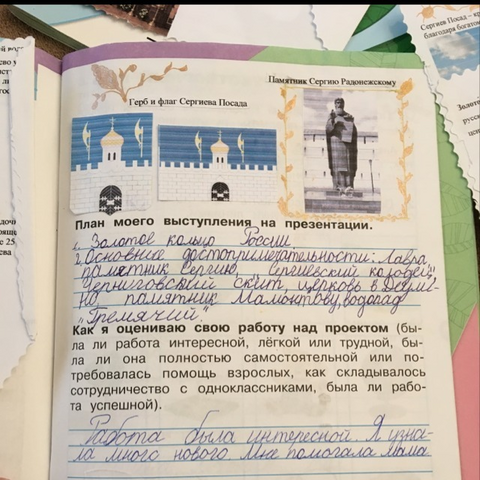 Сергиев Посад – кр
благодаря богато
Золото
русск
цен
Памятник Сергию Радонежскому
Герб и флаг Сергиева Посада
План моего выступления на презентации.
1. Золотое кольцо России.
2. Основные достопримечательности: Лавра,
памятник Сергию, "Сергиевский колодец",
Черниговский скит, церковь в Деули-
но, памятник Мамонтову, водопад
"Гремячий".
Как я оцениваю свою работу над проектом (бы-
ла ли работа интересной, лёгкой или трудной, бы-
ла ли она полностью самостоятельной или по-
требовалась помощь взрослых, как складывалось
сотрудничество с одноклассниками, была ли рабо-
та успешной).
Работа была интересной. Я узна-
ла много нового. Мне помогала мама